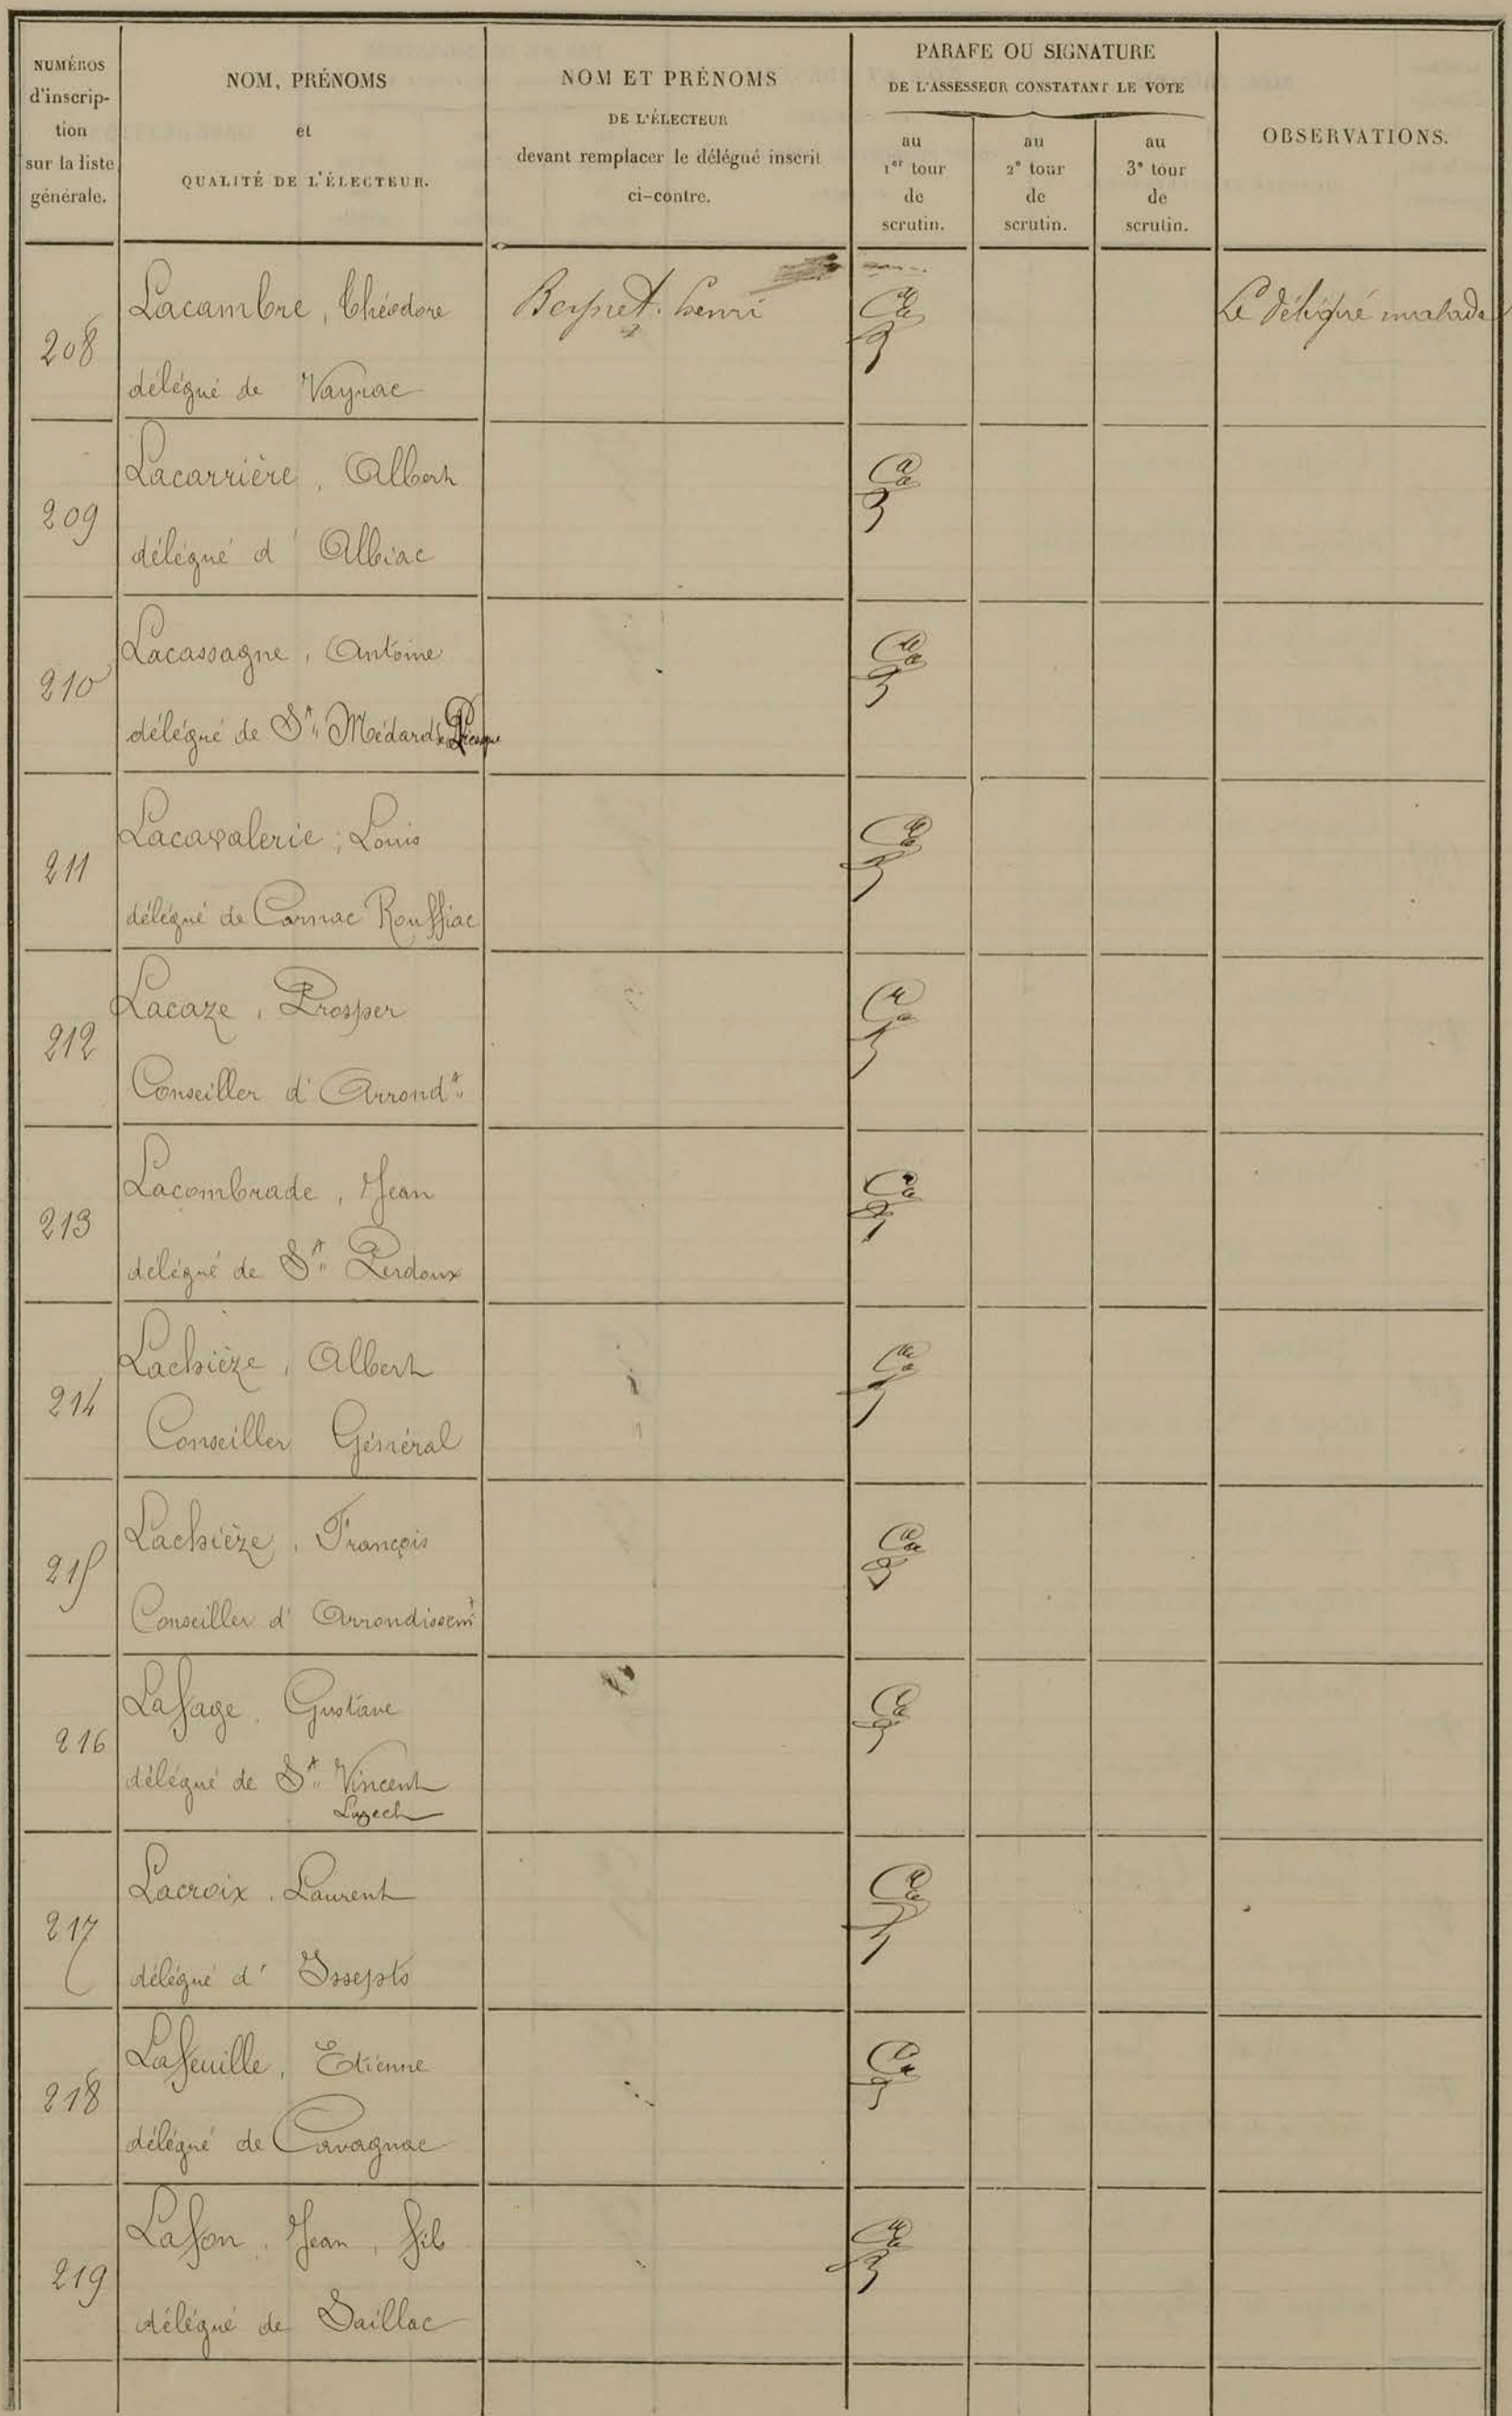 NUMÉROS
d'inscrip-
tion
sur la liste
générale.
NOM, PRÉNOMS
et
QUALITÉ DE L'ÉLECTEUR.
NOM ET PRÉNOMS
DE L'ÉLECTEUR
devant remplacer le délégué inscrit
ci-contre.
PARAFE OU SIGNATURE
DE L'ASSESSEUR CONSTATANT LE VOTE
au
1er tour
de
scrutin.
au
2e tour
de
scrutin.
au
3e tour
de
scrutin.
OBSERVATIONS.
208
Lacambre, Théodore
délégué de Vayrac
henri
Le délégué malade
209
Lacarrière, Albert
délégué d'Albiac
210
Lacassagne, Antoine
délégué de St Médard de Presque
211
Lacavalerie, Louis
délégué de Carnac Rouffiac
212
Lacaze, Prosper
Conseiller d'Arrondt
213
Lacombrade, Jean
délégué de St Perdoux
214
Lachièze, Albert
Conseiller Général
215
Lachièze, François
Conseiller d'Arrondissemt
216
Lafage, Gustave
délégué de St Vincent
Luzech
217
Lacroix, Laurent
délégué d'Issepts
218
Lafeuille, Etienne
délégué de Cavagnac
219
Lafon, Jean, fils
délégué de Saillac